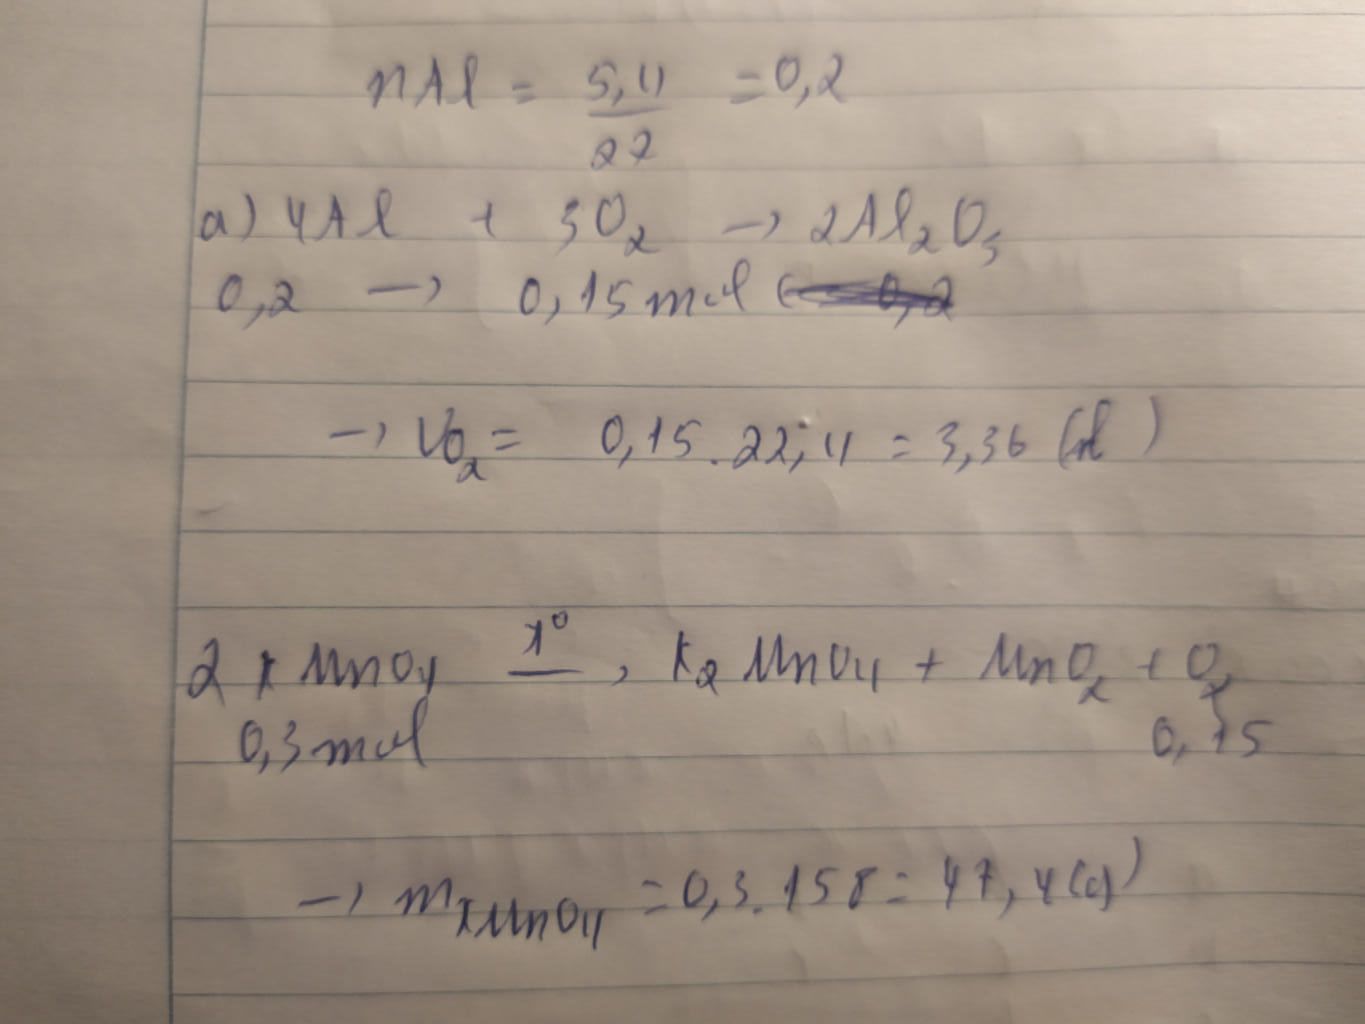 nAl = 5,4/27 = 0,2
a) 4Al + 3O₂ → 2Al₂O₃
0,2 → 0,15mol ← 0,2
→ VO₂ = 0,15.22,4 = 3,36 (l)
2KMnO₄ t° → K₂MnO₄ + MnO₂ + O₂
0,3mol 0,15
→ mKMnO₄ = 0,3.158 = 47,4(g)